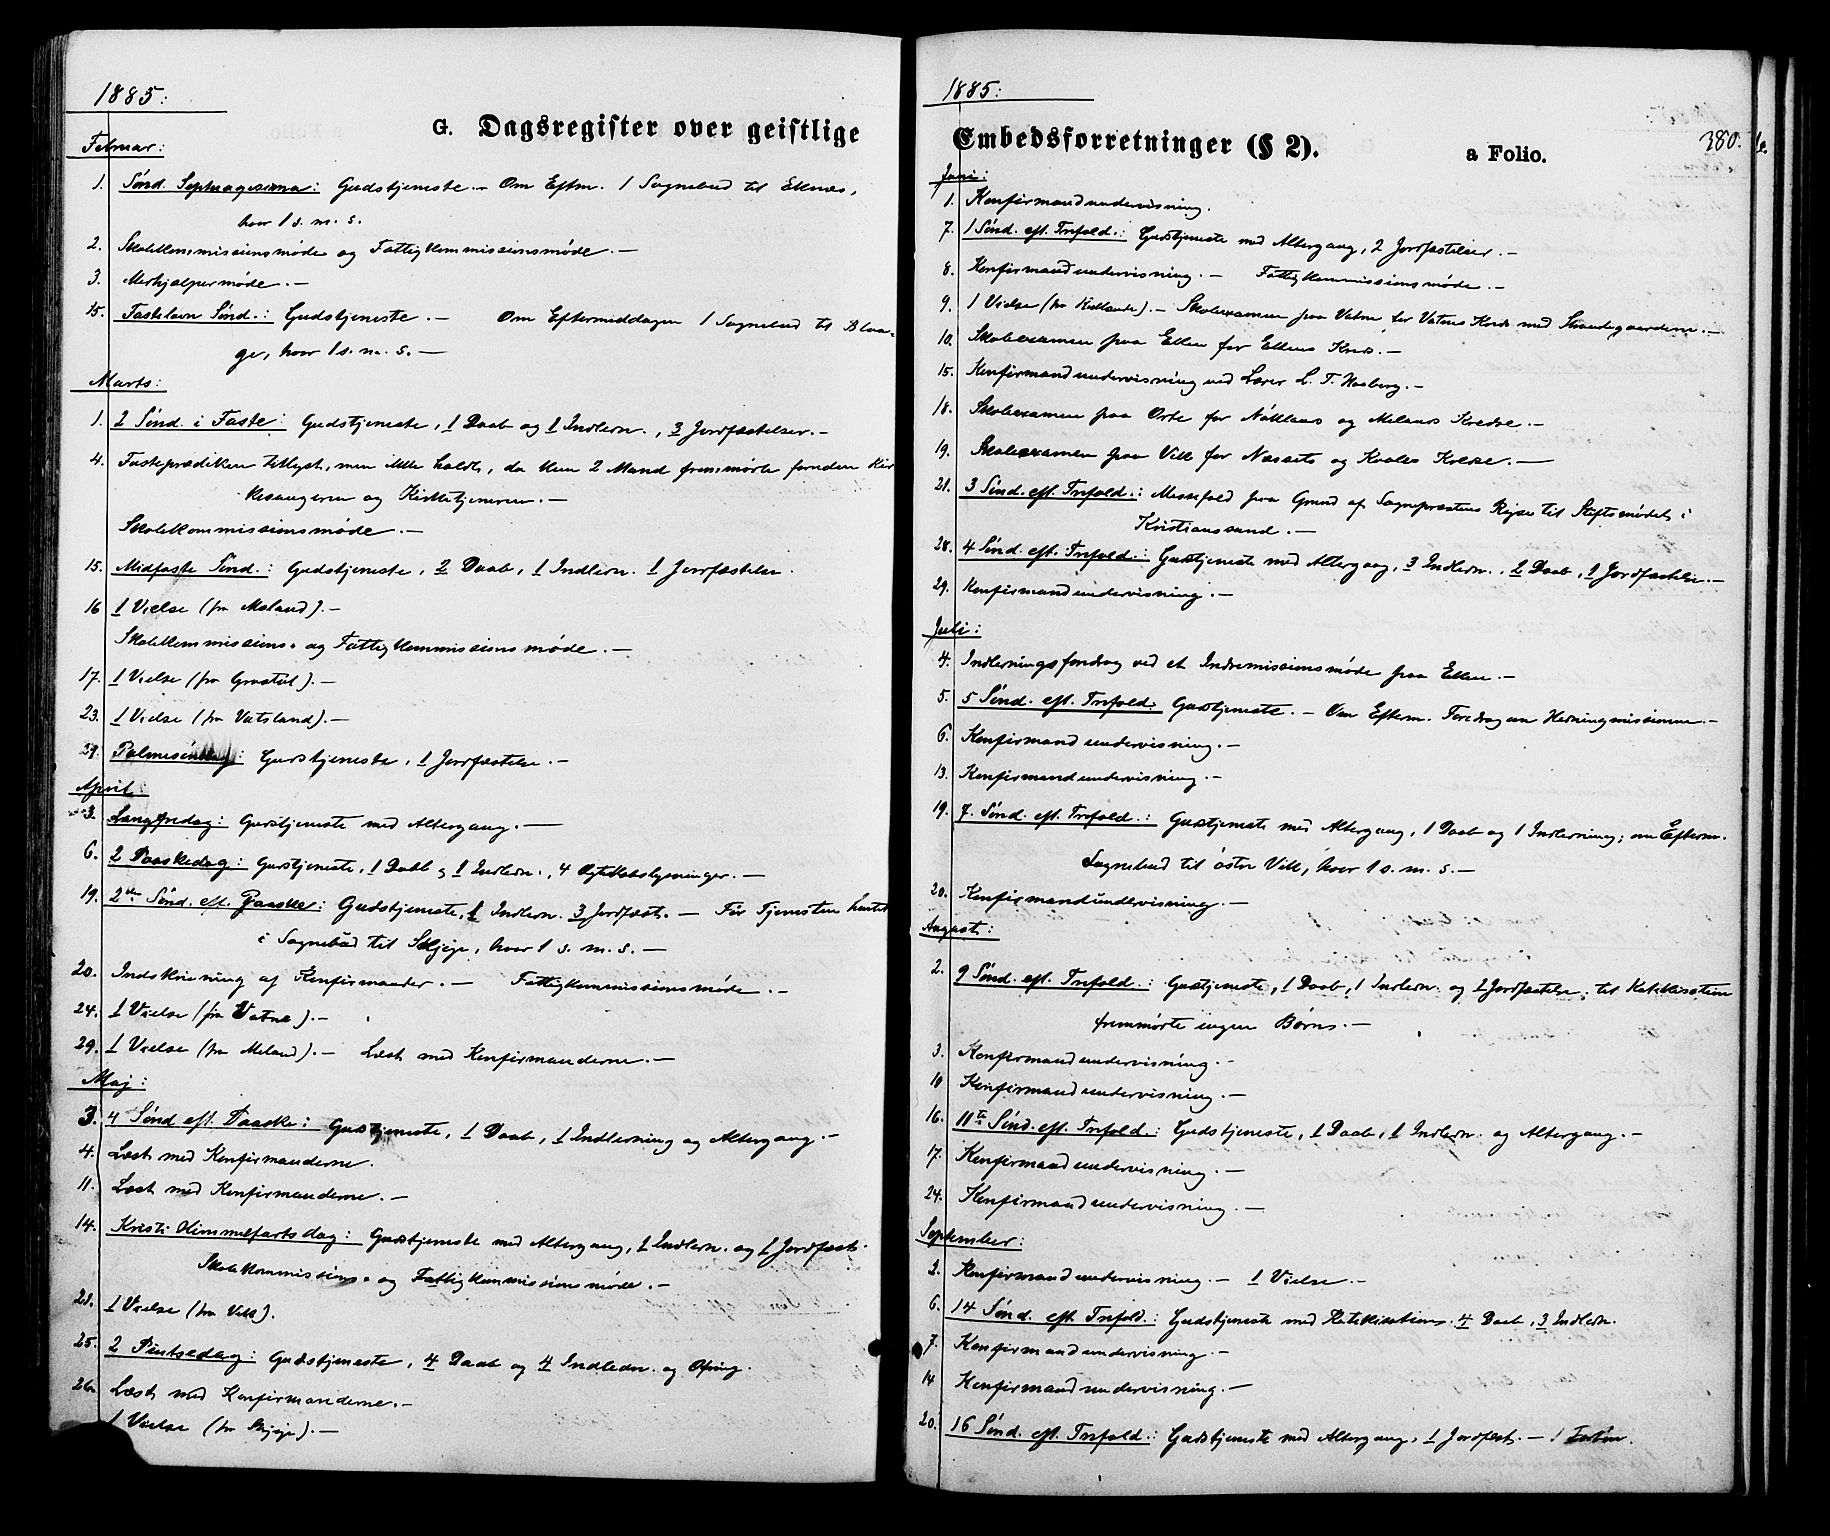 1885:
G. Dagsregister over geistlige
Februar:
1. Sønd. Septuagesima: Gudstjeneste. — Om Eftm. 1 Sognebud til Eknæs,
hvor 1 s. m. s.
2. Skolekommissionsmøde og Fattigkommissionsmøde. —
3. Medhjælpermøde. —
15. Fastelavn Sønd.: Gudstjeneste. — Om Eftermiddagen 1 Sognebud til
ger, hvor 1 s. m. s. —
Marts:
1. 2 Sønd. i Faste: Gudstjeneste, 1 Daab og 1 Indledn., 3 Jordfæstelser. —
4. Fasteprædiken tillyst, men ikke holdt, da kun 2 Mand fremmødte foruden Kir
kesangeren og Kirketjeneren. —
Skolekommissionsmøde. —
15. Midfaste Sønd.: Gudstjeneste, 2 Daab, 1 Indledn. 1 Jordfæstelse.
16 1 Vielse (fra Meland). —
Skolekommissions- og Fattigkommissionsmøde. —
17. 1 Vielse (fra Grostøl). —
23. 1 Vielse (fra Vatsland). —
29. Palmesøndag: Gudstjeneste, 1 Jordfæstelse. —
April:
3. Langfredag: Gudstjeneste med Altergang. —
6. 2 Paaskedag: Gudstjeneste, 1 Daab og 1 Indledn., 4 Ægteskabslysninger. —
19. 2den Sønd. eft. Paaske: Gudstjeneste, 1 Indledn. 3 Jordfæst. — Før Tjenesten hentet
i Sognebud til Skjeje, hvor 1 s. m. s. —
20. Indskrivning af Konfirmander. — Fattigkommissionsmøde. —
24. 1 Vielse (fra Vatne). —
29. 1 Vielse (fra Meland). — Læst med Konfirmanderne. —
Maj:
3. 4 Sønd eft. Paaske: Gudstjeneste, 1 Daab, 1 Indledning og Altergang. —
4. Læst med Konfirmanderne.
11. Læst med Konfirmanderne. —
14. Kristi Himmelfartsdag: Gudstjeneste med Altergang, 1 Indledn. og 1 Jordfæst.
Skolekommissions- og Fattigkommissionsmøde. —
21. 1 Vielse (fra Vik).
25. 2 Pintsedag: Gudstjeneste, 4 Daab og 4 Indledn. og Ofring.
26. Læst med Konfirmanderne. —
1 Vielse (fra Skjeje). —
1885:
Embedsforretninger (§ 2).
a Folio.
380.
Juni:
1. Konfirmandundervisning.
7. 1 Sønd. eft. Trefold.: Gudstjeneste med Altergang, 2 Jordfæstelser. —
8. Konfirmandundervisning. — Fattigkommissionsmøde. —
9. 1 Vielse (fra ). — Skoleexamen paa Vatne for Vatnes Kreds med Strandegaardene. —
10. Skoleexamen paa Ellen for Ellens Kreds. —
15. Konfirmandundervisning ved Lærer L. T. —
18. Skoleexamen paa for og Melands Kredse. —
19. Skoleexamen paa Vik for Næssets og Kvales Kredse. —
21. 3 Sønd. eft. Trefold.: Messefald paa Grund af Sognepræstens Rejse til Stiftsmødet i
Kristianssand. —
28. 4 Sønd. eft. Trefold.: Gudstjeneste med Altergang, 3 Indledn., 2 Daab, 1 Jordfæstelse. —
29. Konfirmandundervisning. —
Juli:
4. Indledningsforedrag ved et Indremissionsmøde paa Ellen. —
5. 5 Sønd. eft. Trefold. Gudstjeneste. — Om Efterm. Foredrag om Hedningmissionen. —
6. Konfirmandundervisning. —
13. Konfirmandundervisning. —
19. 7. Sønd. eft. Trefold.: Gudstjeneste med Altergang, 1 Daab og 1 Indledning; om Efterm.
Sognebud til østre Vik, hvor 1 s. m. s. —
20. Konfirmandundervisning. —
August:
2. 9 Sønd. eft. Trefold.: Gudstjeneste, 1 Daab, 1 Indledn. og 1 Jordfæstelse; til Katekisation
fremmødte ingen Børn. —
3. Konfirmandundervisning. —
10 Konfirmandundervisning. —
16. 11te Sønd. eft. Trefold.: Gudstjeneste, 1 Daab, 1 Indledn. og Altergang. —
17. Konfirmandundervisning. —
24. Konfirmandundervisning. —
September:
2. Konfirmandundervisning. — 1 Vielse. —
6. 14 Sønd. eft. Trefold.: Gudstjeneste med Katekisation. 4 Daab, 3 Indledn.
7. Konfirmandundervisning. —
14 Konfirmandundervisning. —
20. 16 Sønd. eft. Trefold.: Gudstjeneste med Altergang, 1 Jordfæst. — 1